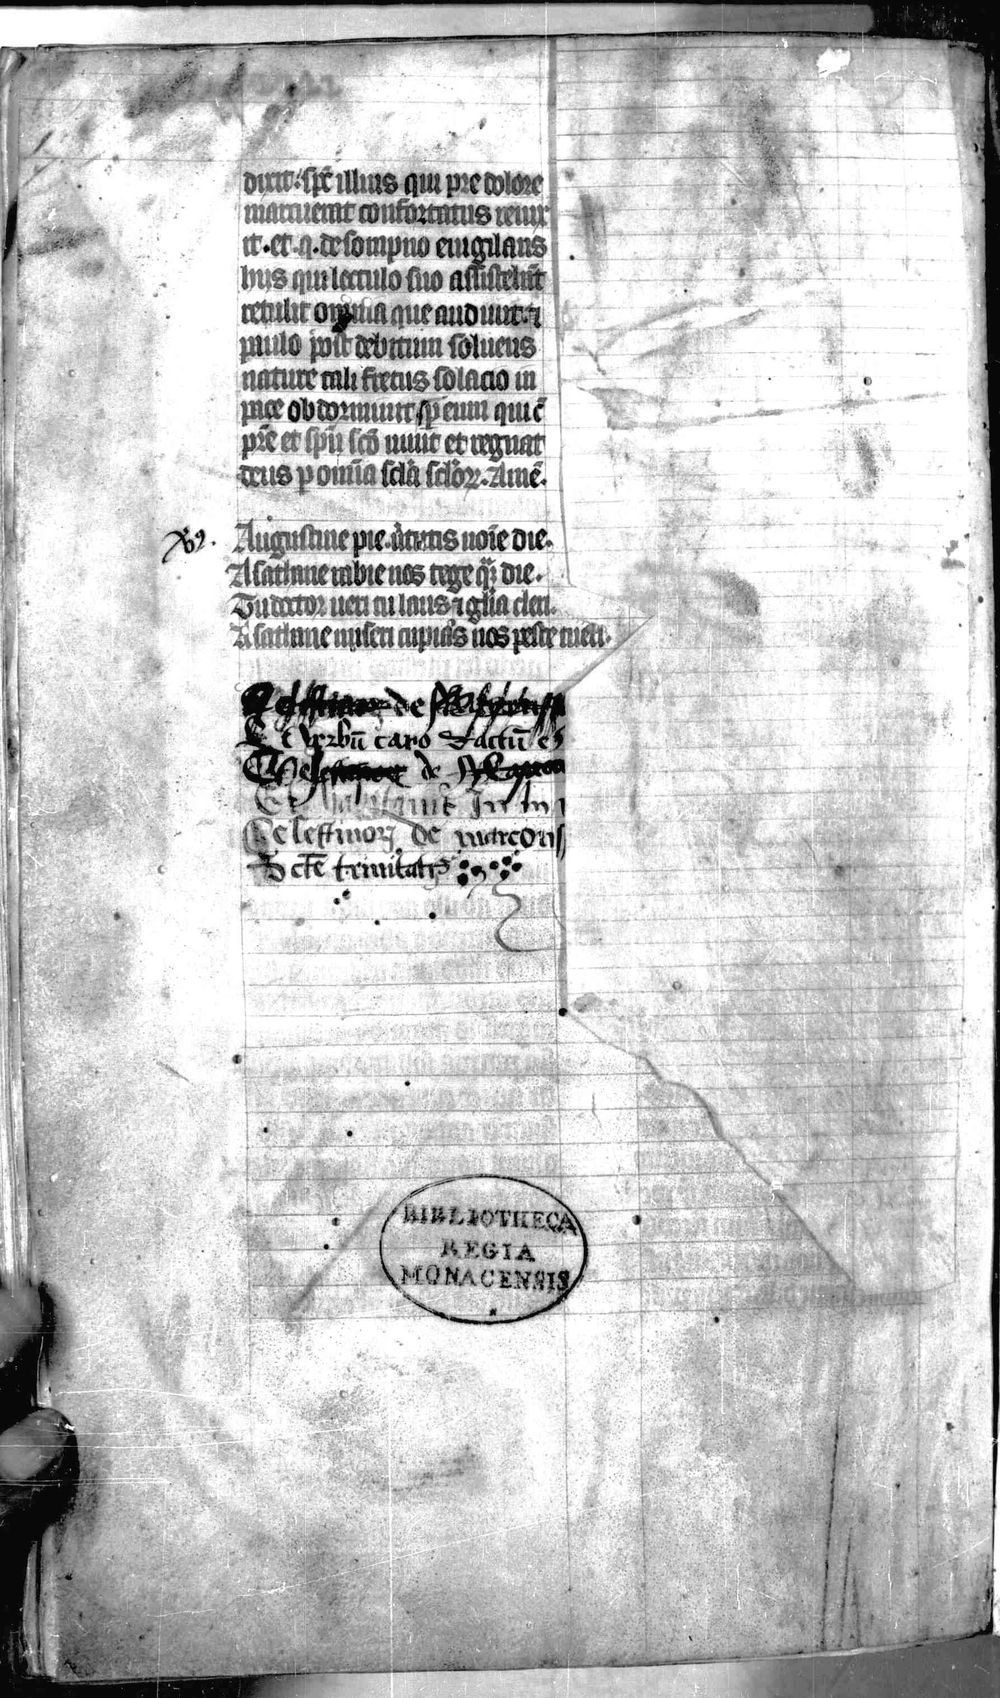 dixit. spc illius qui pre dolore
marcuerat confortatus reuix
it. et. q. de sompno euigilans
hijs qui lectulo suo assistebāt
retulit omnia que audiuit. ⁊
paulo post debitum soluens
nature tali fretus solacio in
pace obdormiuit sp eum qui c̄
pr̄e et spū sc̄o uiuit et regnat
deus p om̄ia sc̄la sc̄lor̄. Amē.
Augustine pie. ùtatis noīe die.
A sathane rabie nos tege q̄ die.
Tu doctor ueri tu laus ⁊ gl̄ia cleri.
A sathane miseri cupiās nos peste tueri.
de
Et verbū caro factū es
de
Et habitauit In n
Celestinorꝫ de marcous
S cte trinitatis
BIBLIOTHECA
REGIA
MONACENSIS